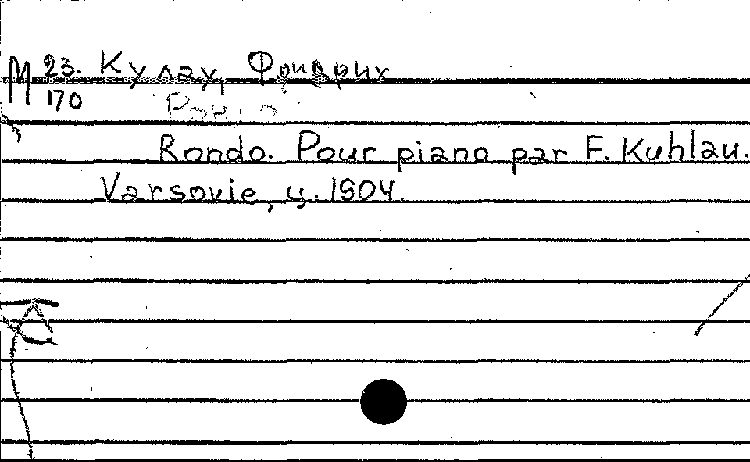 М 23. Кулау, Фридрих
170
Rondo. Pour piano par F. Kuhlau.
Varsovie, ц. 1904.